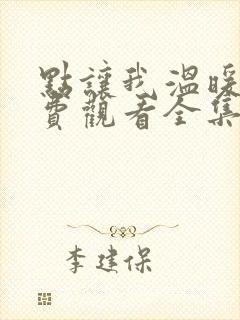 點讓我溫暖
費觀看全集
李建保